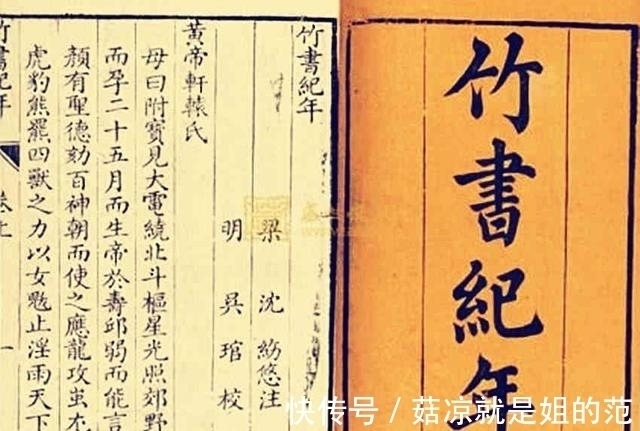 竹書紀年
竹書紀年
梁 沈 紛悠注
明 吳 琯 校
黃帝軒轅氏
母曰附寶見大電繞北斗樞星光照郊野
而孕二十五月而生帝於壽邱弱而能言
顏有聖德劾百神朝而使之應龍攻蚩尤
虎豹熊羆四獸之力以女魃止淫雨天下
竹書紀年 卷上 一
快传号/菇凉就是姐的范